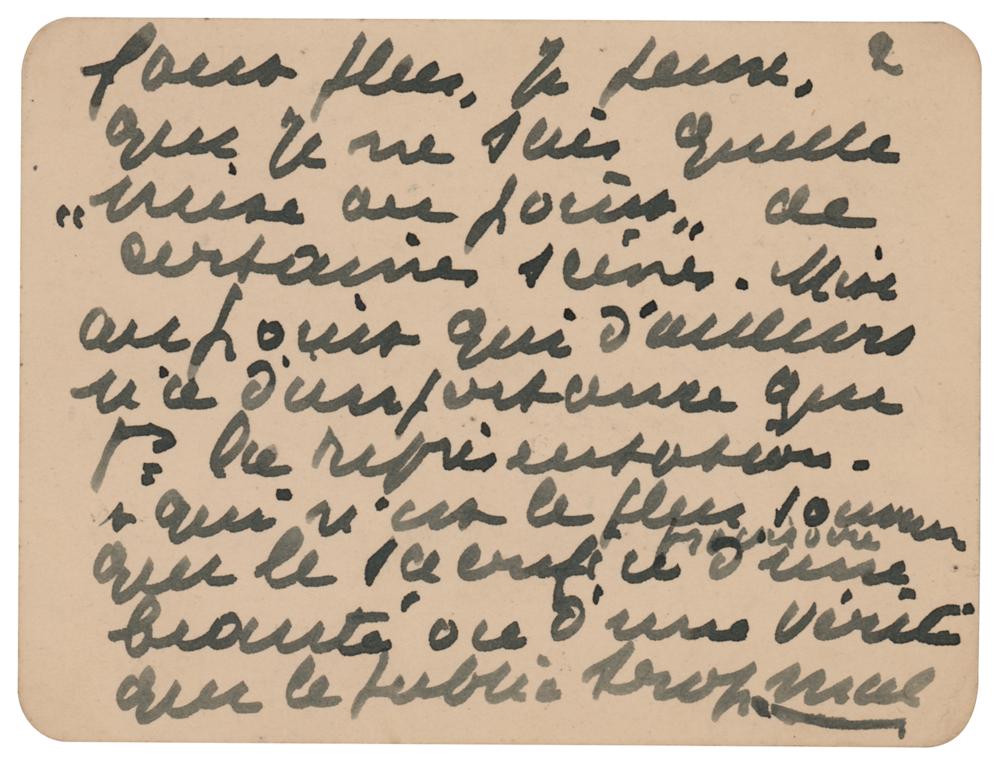 2
sont plus, je pense,
que je ne sais quelle
"mise au point" de
certaines scènes. Mise
au point qui d'ailleurs
n'a d'importance que
pr la représentation.
+ qui n'est le plus souven
provisoire
que le sacrifice d'une
beauté ou d'une vérité
que le public trop mal